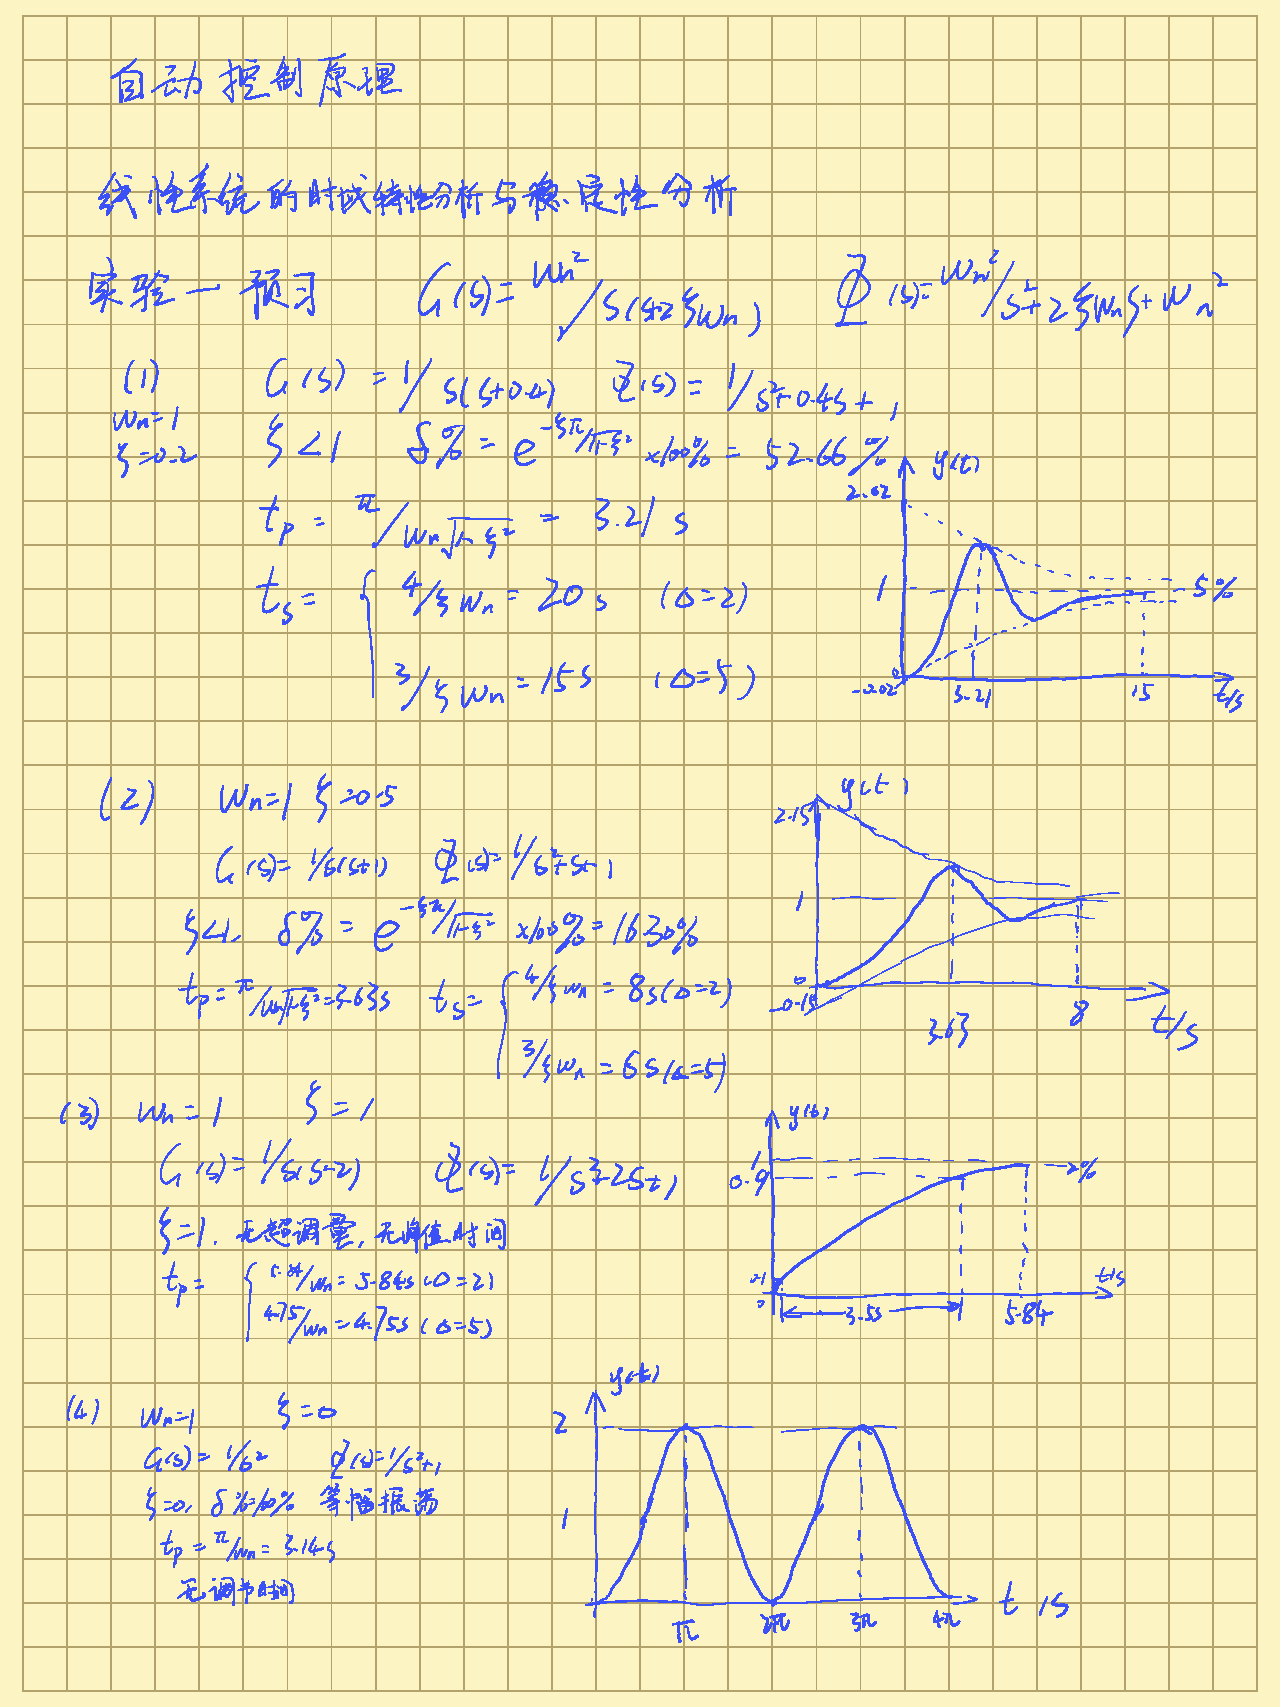 自动控制原理
线性系统的时域特性分析与稳定性分析
实验一预习 G(s)=Wn²/s(s+2ξWn) Φ(s)=Wn²/s²+2ξWns+Wn²
(1) G(s)=1/s(s+0.4) Φ(s)=1/s²+0.4s+1
Wn=1
ξ=0.2 ξ<1 δ%=e^-ξπ/√1-ξ² ×100%=52.66%
tp=π/Wn√1-ξ²=3.21s
ts={4/ξWn=20s (Δ=2)
3/ξWn=15s (Δ=5)
y(t)
2.02
1
5%
0
-0.02
3.21
15
t/s
(2) Wn=1 ξ=0.5
G(s)=1/s(s+1) Φ(s)=1/s²+s+1
ξ<1, δ%=e^-ξπ/√1-ξ² ×100%=16.30%
tp=π/Wn√1-ξ²=3.63s ts={4/ξWn=8s(Δ=2)
3/ξWn=6s(Δ=5)
y(t)
2.15
1
0
-0.15
3.63
8
t/s
(3) Wn=1 ξ=1
G(s)=1/s(s+2) Φ(s)=1/s²+2s+1
ξ=1, 无超调量, 无峰值时间
tp={5.84/Wn=5.84s(Δ=2)
4.75/Wn=4.75s(Δ=5)
y(t)
1
0.9
2%
0.1
0
3.5s
5.84
t/s
(4) Wn=1 ξ=0
G(s)=1/s² Φ(s)=1/s²+1
ξ=0, δ%=100% 等幅振荡
tp=π/Wn=3.14s
无调节时间
y(t)
2
1
π 2π 3π 4π
t/s